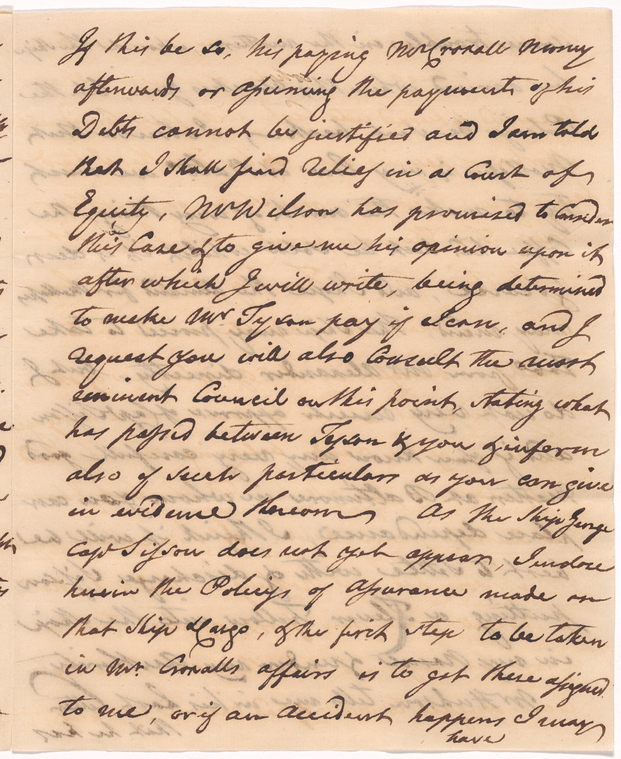 If this be so, his paying Mr Croxall money
afterwards or assuming the payments of his
Debts cannot be justified and I am told
that I shall find relief in a Court of
Equity, Mr Wilson has promised to Consider
this Case & to give me his opinion upon it
after which I will write, being determined
to make Mr Tyson pay if I can, and I
request you will also Consult the most
eminent Council on this point, stating what
has passed between Tyson & you & inform
also of such particulars as you can give
in evidence thereon As the Ship George
Capt Sisson does not yet appear, I inclose
herein the Policys of Assurance made on
that Ship & Cargo, & the first step to be taken
in Mr Croxalls affairs is to get these assigned
to me, or if an accident happens I may
have